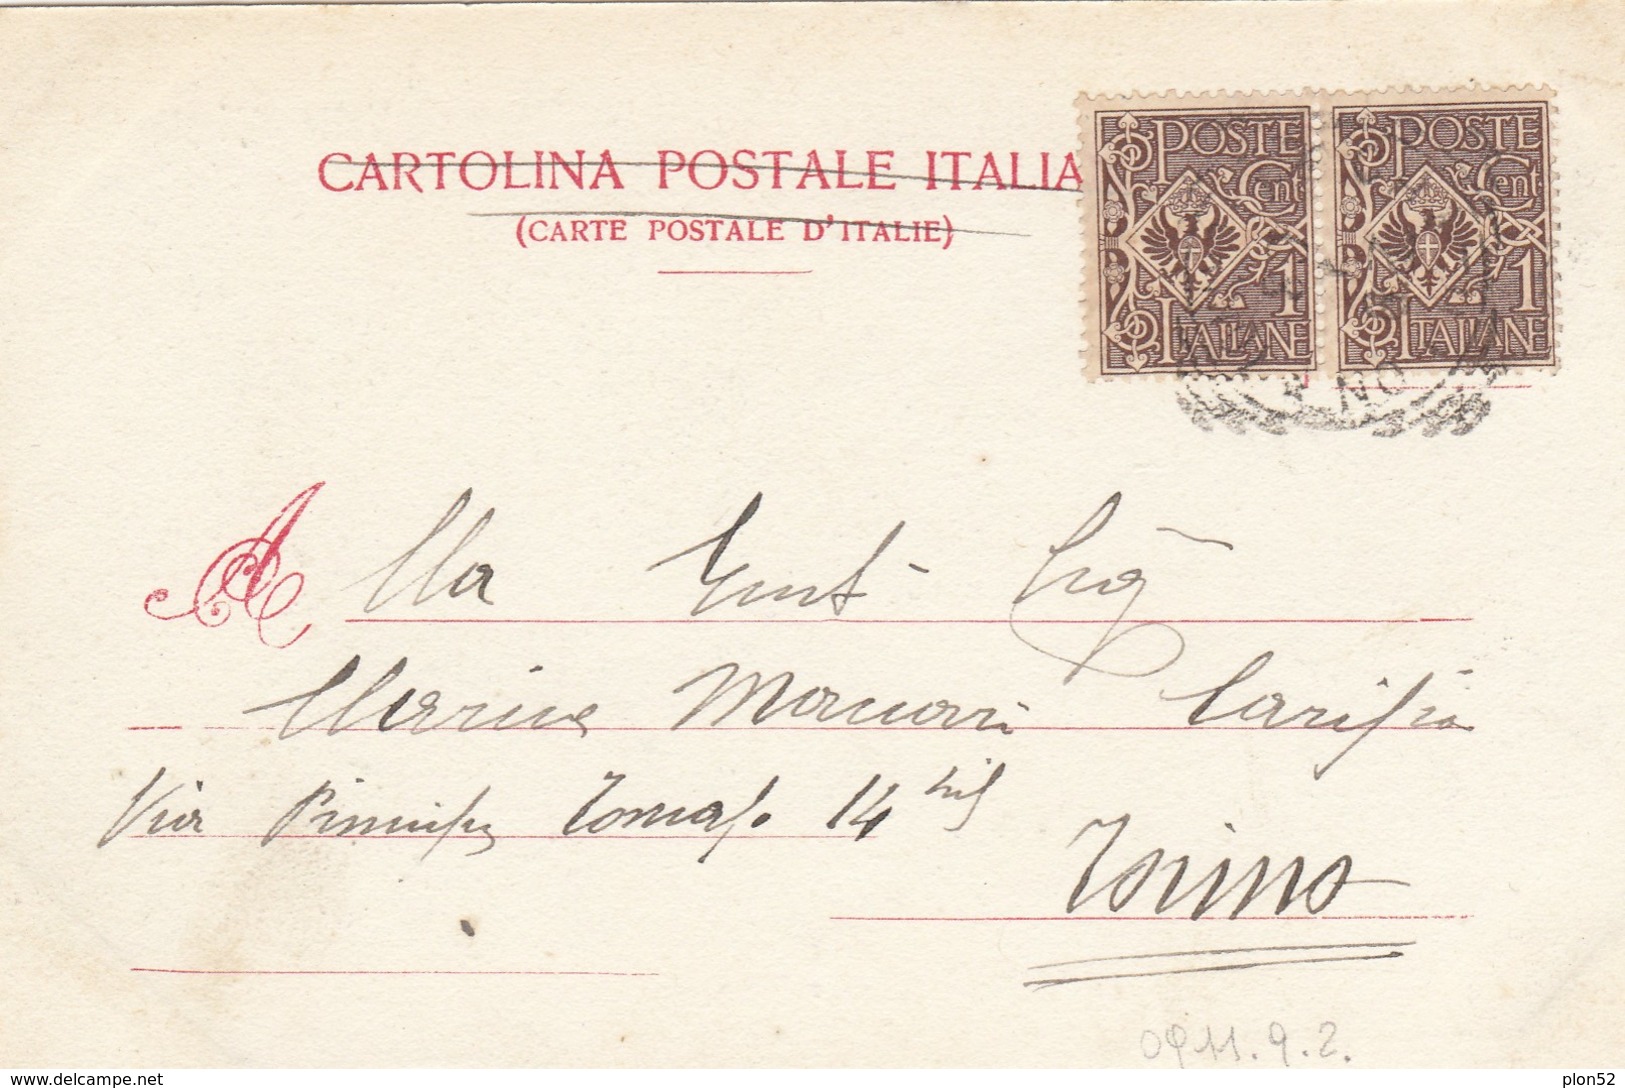 CARTOLINA POSTALE ITALIA
(CARTE POSTALE D'ITALIE)
POSTE
Cent.
1
ITALIANE
POSTE
Cent.
1
ITALIANE
Alla Gent Sig
Marina
Via Principe Tomaso 14 bis
Torino
0911.9.2.
www.delcampe.net
plon52